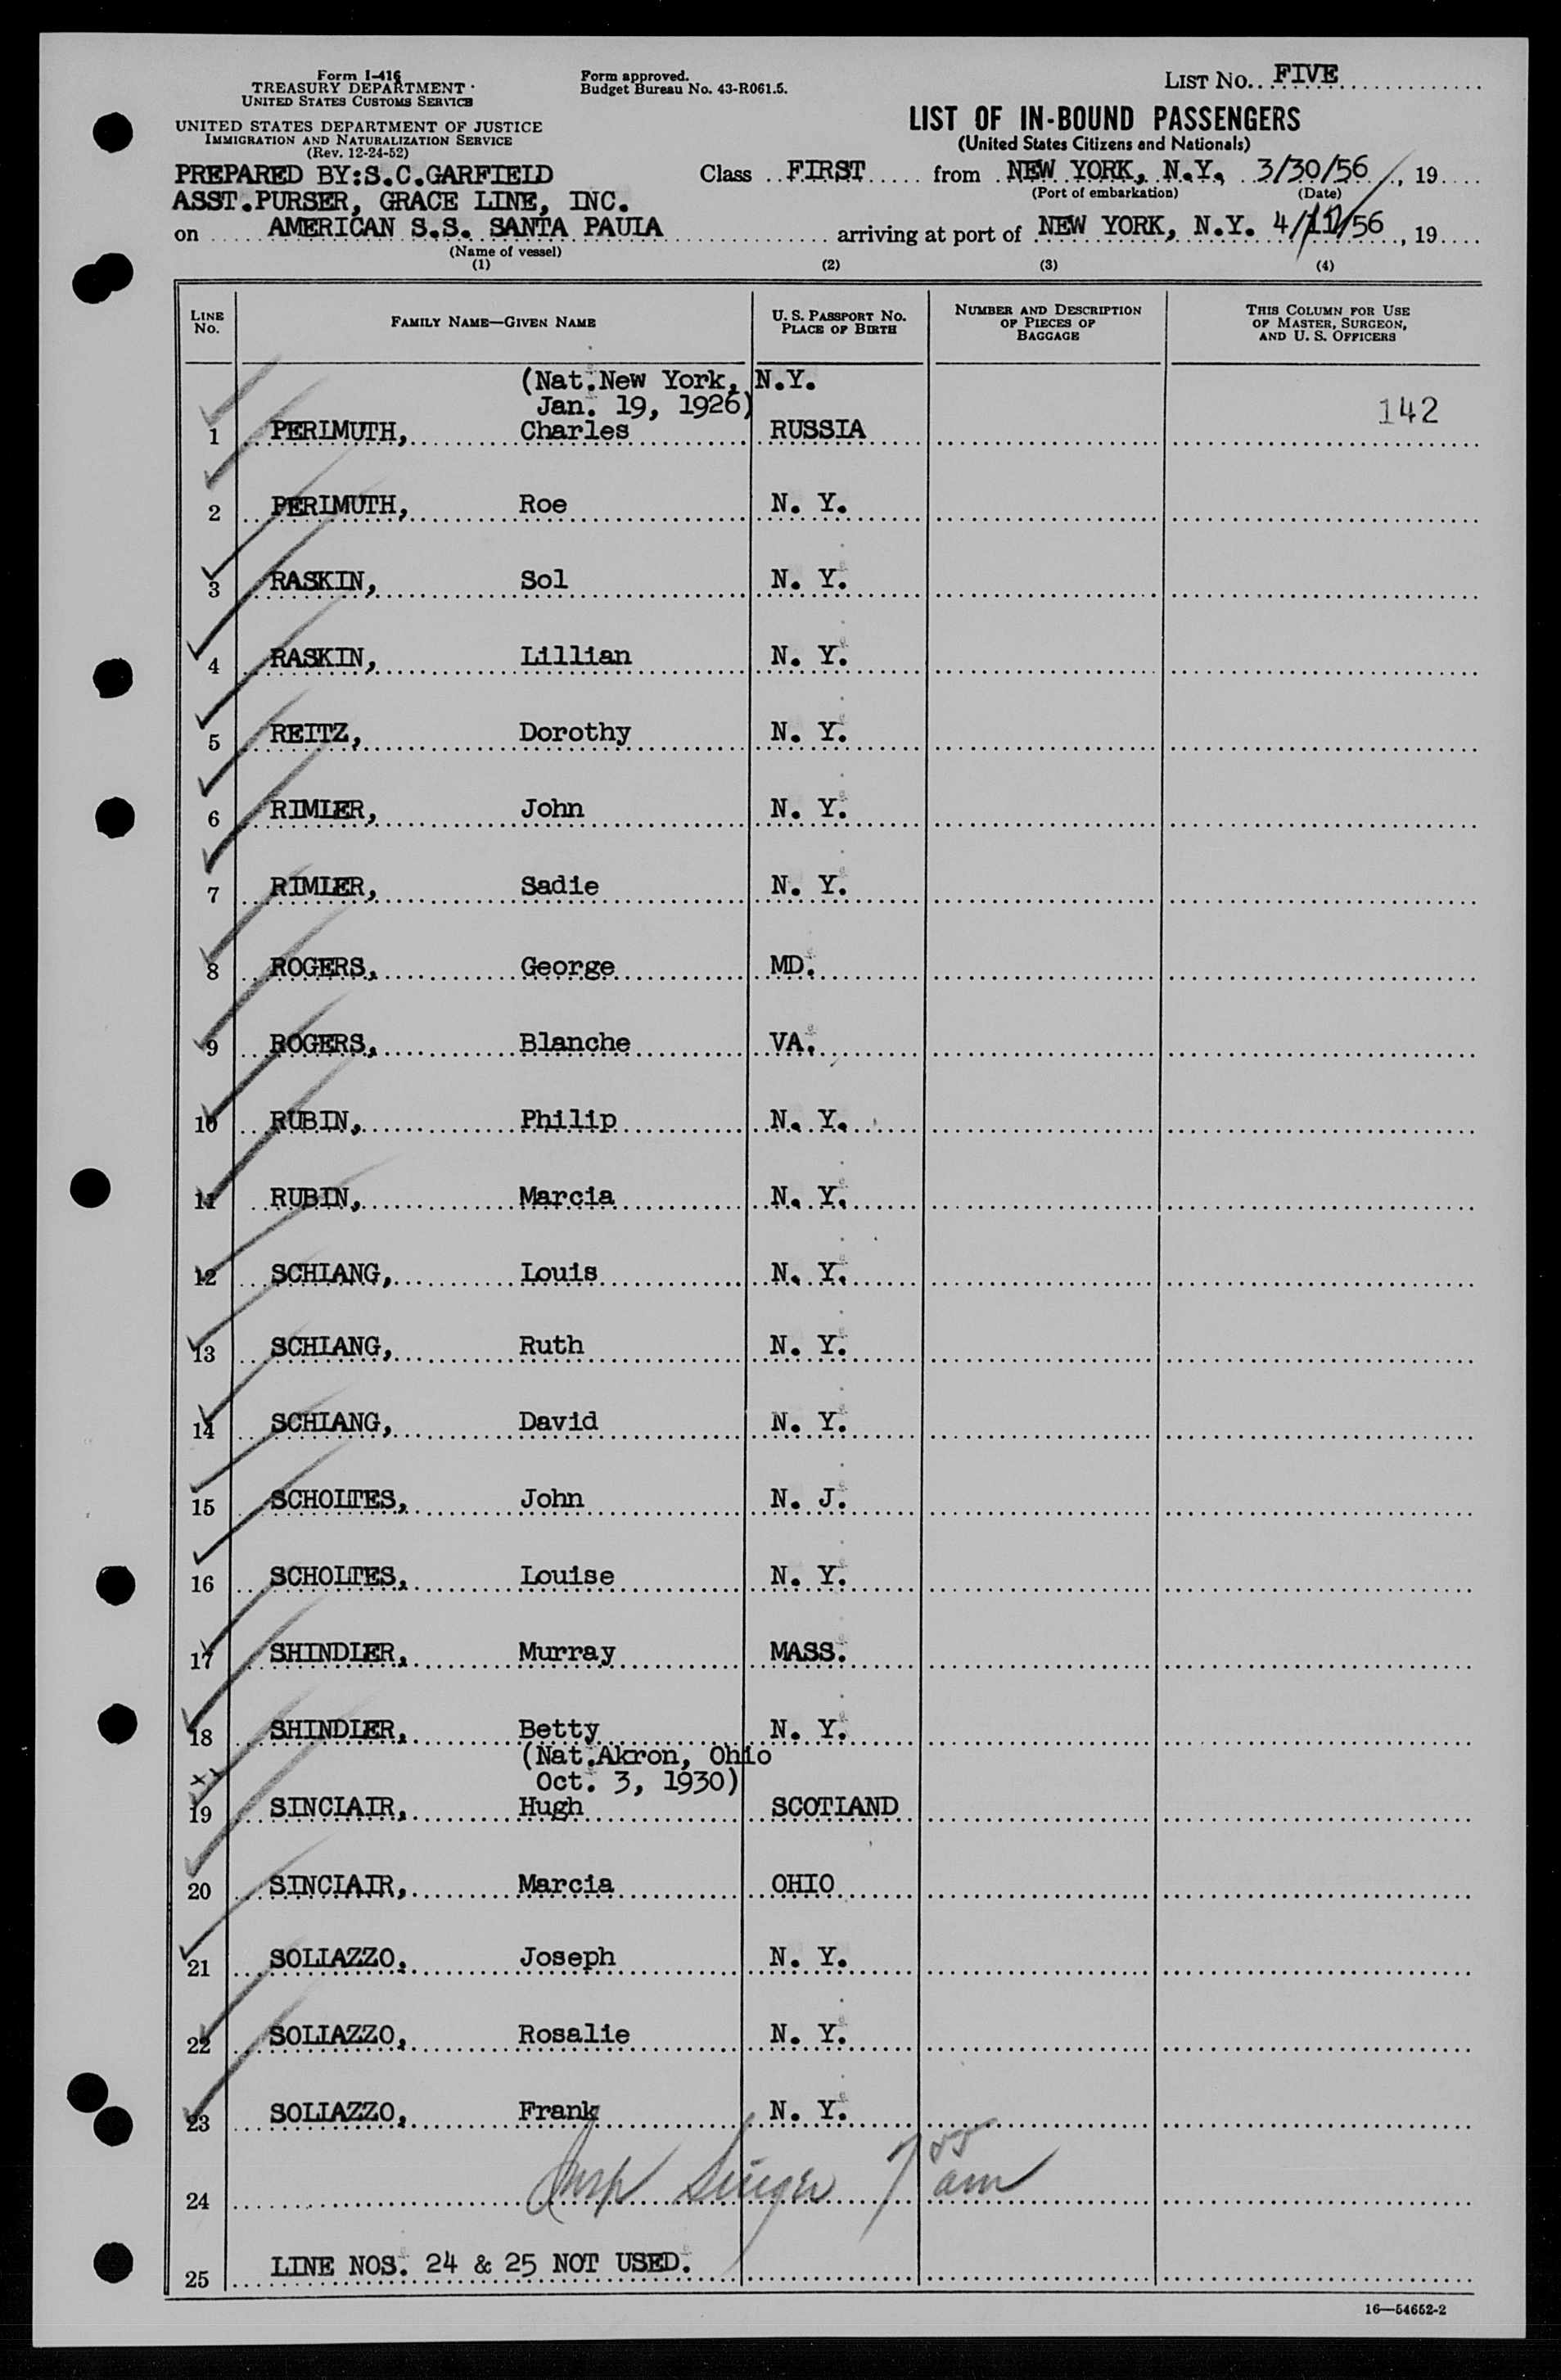 Form I-416
TREASURY DEPARTMENT
UNITED STATES CUSTOMS SERVICE
UNITED STATES DEPARTMENT OF JUSTICE
IMMIGRATION AND NATURALIZATION SERVICE
(Rev. 12-24-52)
Form approved.
Budget Bureau No. 43-R061.5.
LIST NO. FIVE
LIST OF IN-BOUND PASSENGERS
(United States Citizens and Nationals)
PREPARED BY:S.C.GARFIELD
ASST.PURSER, GRACE LINE, INC.
Class FIRST from NEW YORK, N.Y., 3/30/56, 19
(Port of embarkation) (Date)
on AMERICAN S.S. SANTA PAULA arriving at port of NEW YORK, N.Y. 4/11/56, 19
(Name of vessel)
(1) (2) (3) (4)
LINE NO.
FAMILY NAME—GIVEN NAME
U. S. PASSPORT NO.
PLACE OF BIRTH
NUMBER AND DESCRIPTION
OF PIECES OF
BAGGAGE
THIS COLUMN FOR USE
OF MASTER, SURGEON,
AND U. S. OFFICERS
(Nat.New York, N.Y.
Jan. 19, 1926)
1 PERLMUTH, Charles RUSSIA 142
2 PERLMUTH, Roe N. Y.
3 RASKIN, Sol N. Y.
4 RASKIN, Lillian N. Y.
5 REITZ, Dorothy N. Y.
6 RIMLER, John N. Y.
7 RIMLER, Sadie N. Y.
8 ROGERS, George MD.
9 ROGERS, Blanche VA.
10 RUBIN, Philip N. Y.
11 RUBIN, Marcia N. Y.
12 SCHLANG, Louis N. Y.
13 SCHLANG, Ruth N. Y.
14 SCHLANG, David N. Y.
15 SCHOLTES, John N. J.
16 SCHOLTES, Louise N. Y.
17 SHINDLER, Murray MASS.
18 SHINDLER, Betty N. Y.
(Nat.Akron, Ohio
Oct. 3, 1930)
19 SINCLAIR, Hugh SCOTLAND
20 SINCLAIR, Marcia OHIO
21 SOLLAZZO, Joseph N. Y.
22 SOLLAZZO, Rosalie N. Y.
23 SOLLAZZO, Frank N. Y.
24 Insp Singer 7 55 am
25 LINE NOS. 24 & 25 NOT USED.
16—54652-2